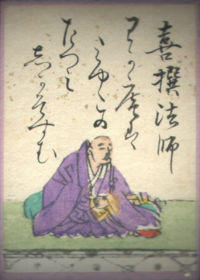 喜撰法師
わか庵は
みやこの
たつみ
しかそすむ